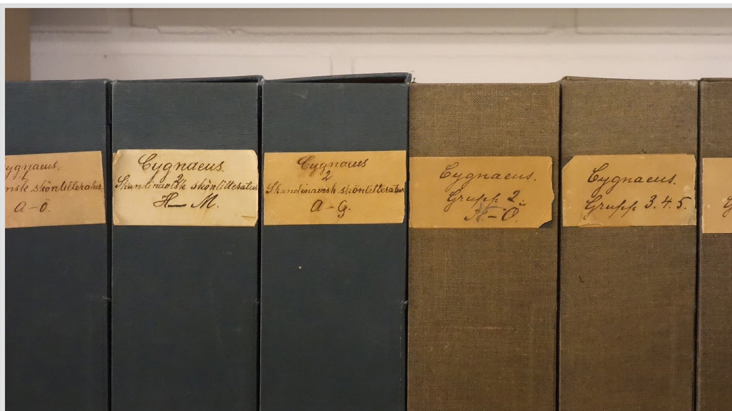 Cygnaeus.
1
skönlitteratur
A-Ö.
Cygnaeus.
2
Skandinavisk skönlitteratur
H-M.
Cygnaeus
2
Skandinavisk skönlitteratur
A-G.
Cygnaeus.
Grupp 2.
-Ö.
Cygnaeus.
Grupp 3.4.5.